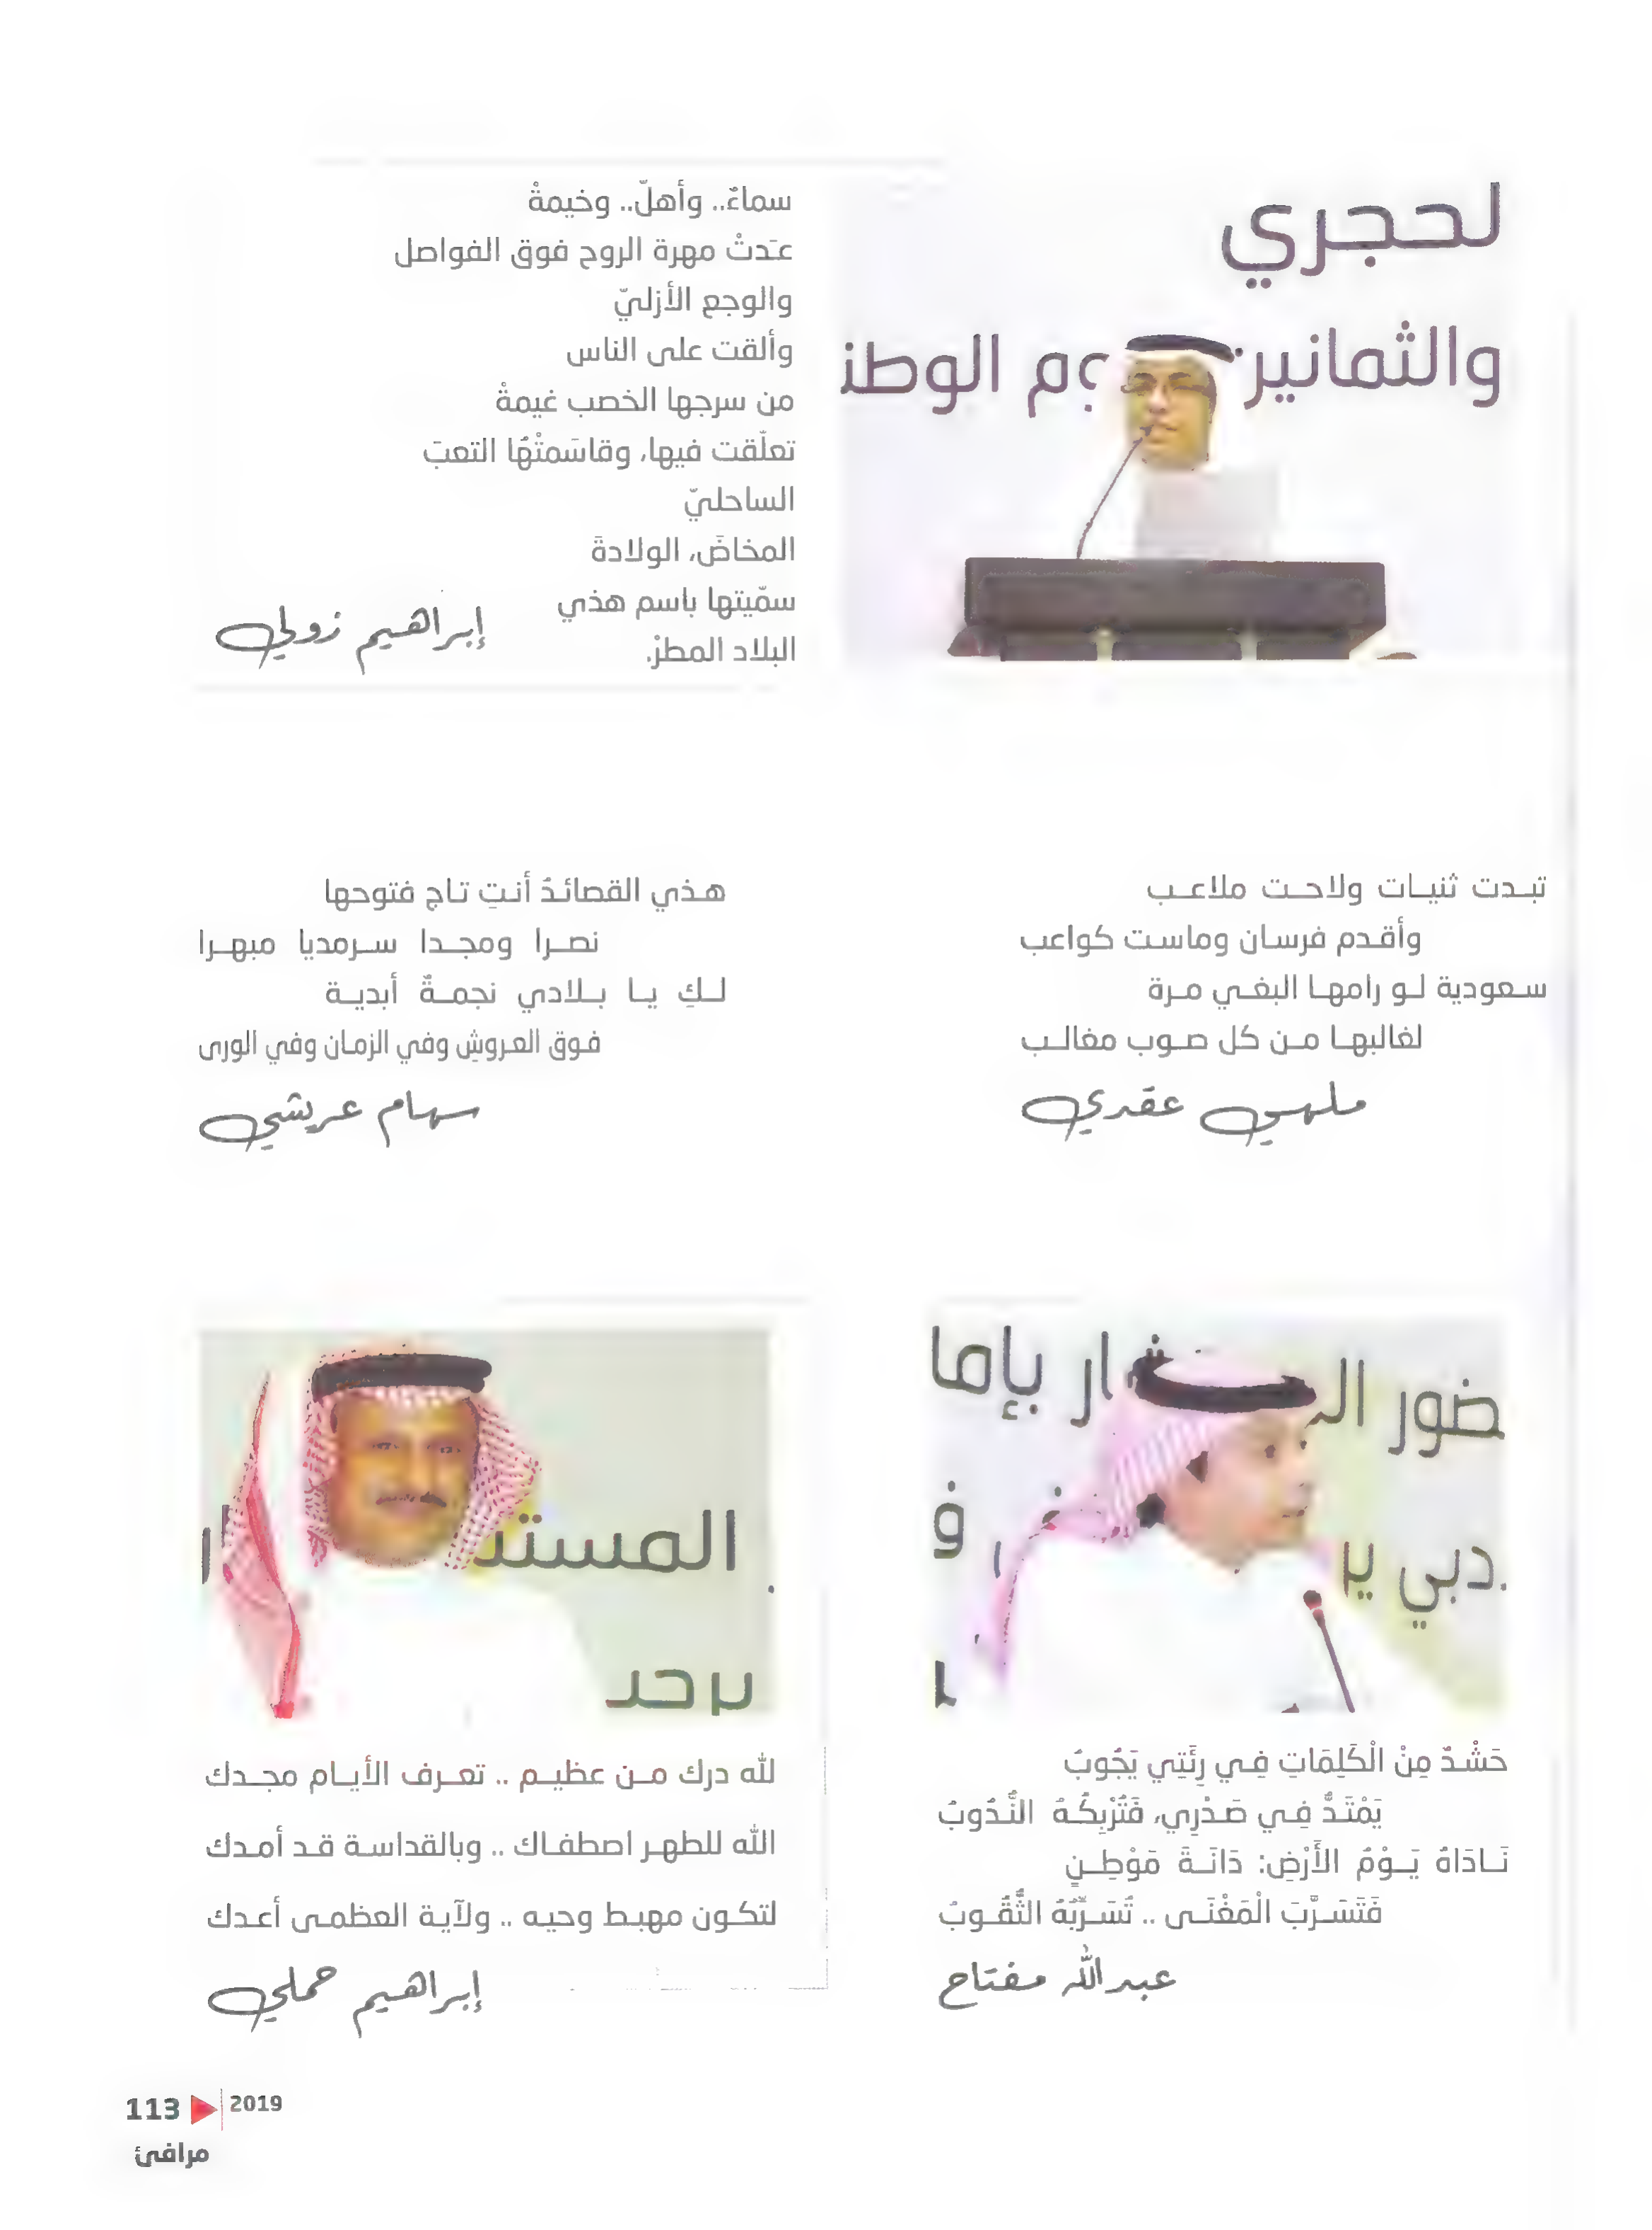 لحجري
والثمانين
وم الوطن
سماءٌ.. وأهلٌ.. وخيمةْ
عدَتْ مهرة الروح فوق الفواصل
والوجع الأزليّ
وألقت على الناس
من سرجها الخصب غيمةْ
تعلّقت فيها، وقاسَمتْهُا التعبَ
الساحليّ
المخاضَ، الولادةَ
سمّيتها باسم هذي
البلاد المطرْ.
إبراهيم زولي
تبدت ثنيات ولاحت ملاعب
وأقدم فرسان وماست كواعب
سعودية لو رامها البغي مرة
لغالبها من كل صوب مغالب
ملهي عقدي
هذي القصائدُ أنتِ تاج فتوحها
نصرا ومجدا سرمديا مبهرا
لكِ يا بلادي نجمةٌ أبدية
فوق العروشِ وفي الزمان وفي الورى
سهام عريشي
ضور ال شار بإما
دبي ير
ف
حَشْدٌ مِنْ الْكَلِمَاتِ فِي رِئَتِي يَجُوبُ
يَمْتَدُّ فِي صَدْرِي، فَتُرْبِكُهُ النُّدُوبُ
نَادَاهُ يَوْمُ الأَرْضِ: دَانَةَ مَوْطِنٍ
فَتَسَرَّبَ الْمَغْنَى .. تُسَرِّبُهُ الثُّقُوبُ
عبدالله مفتاح
المستش
برحد
لله درك من عظيم .. تعرف الأيام مجدك
الله للطهر اصطفاك .. وبالقداسة قد أمدك
لتكون مهبط وحيه .. ولآية العظمى أعدك
إبراهيم حملي
113 2019
مرافئ